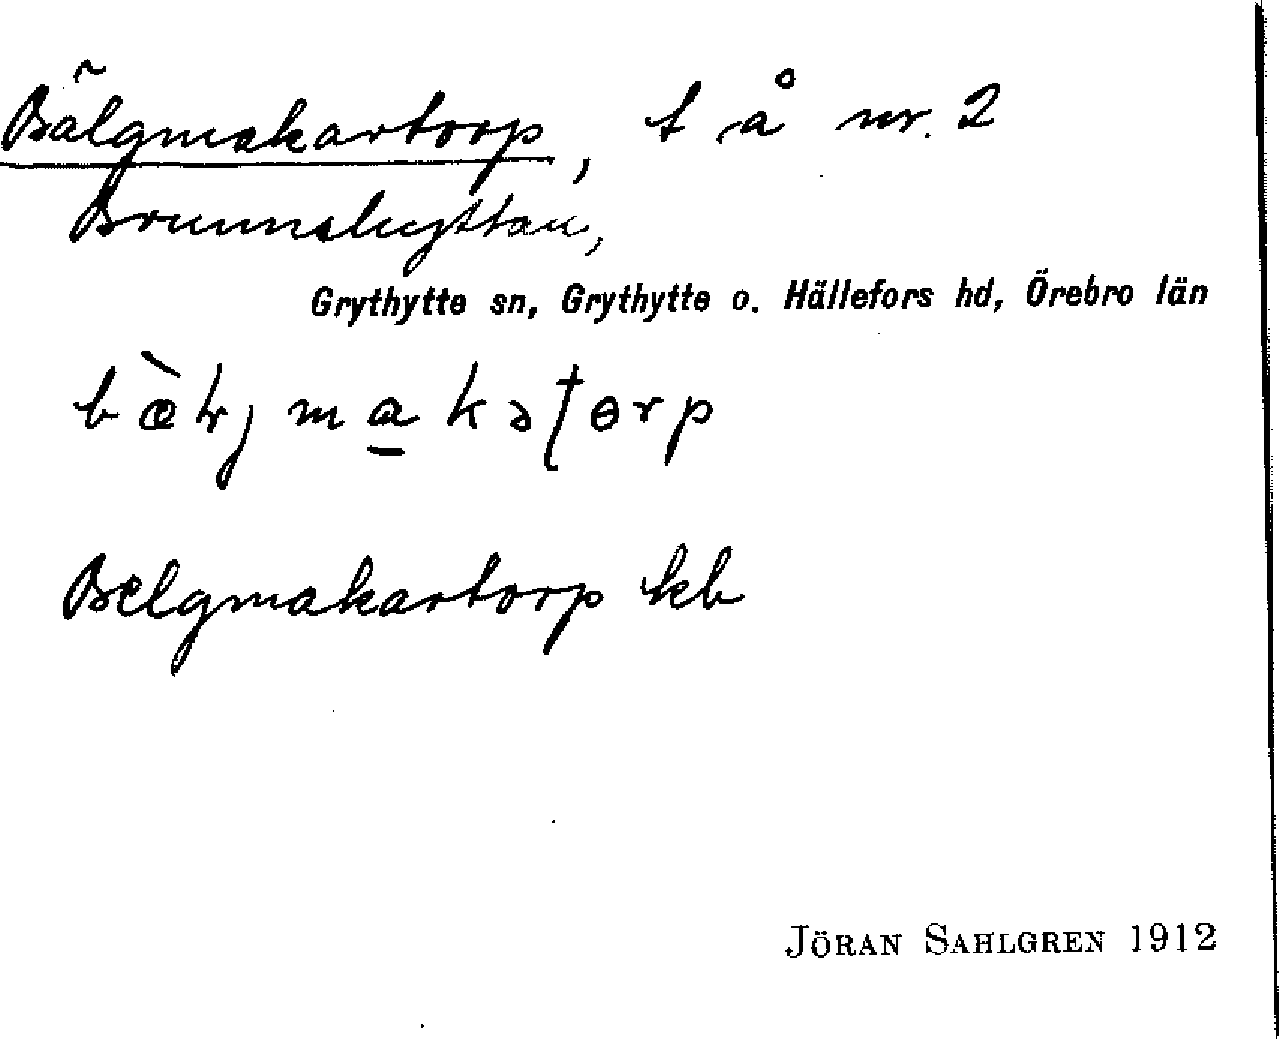 Bälgmakartorp, t å nr. 2
Brunnshyttan,
Grythytte sn, Grythytte o. Hällefors hd, Örebro län
Belgmakartorp kb
JÖRAN SAHLGREN 1912